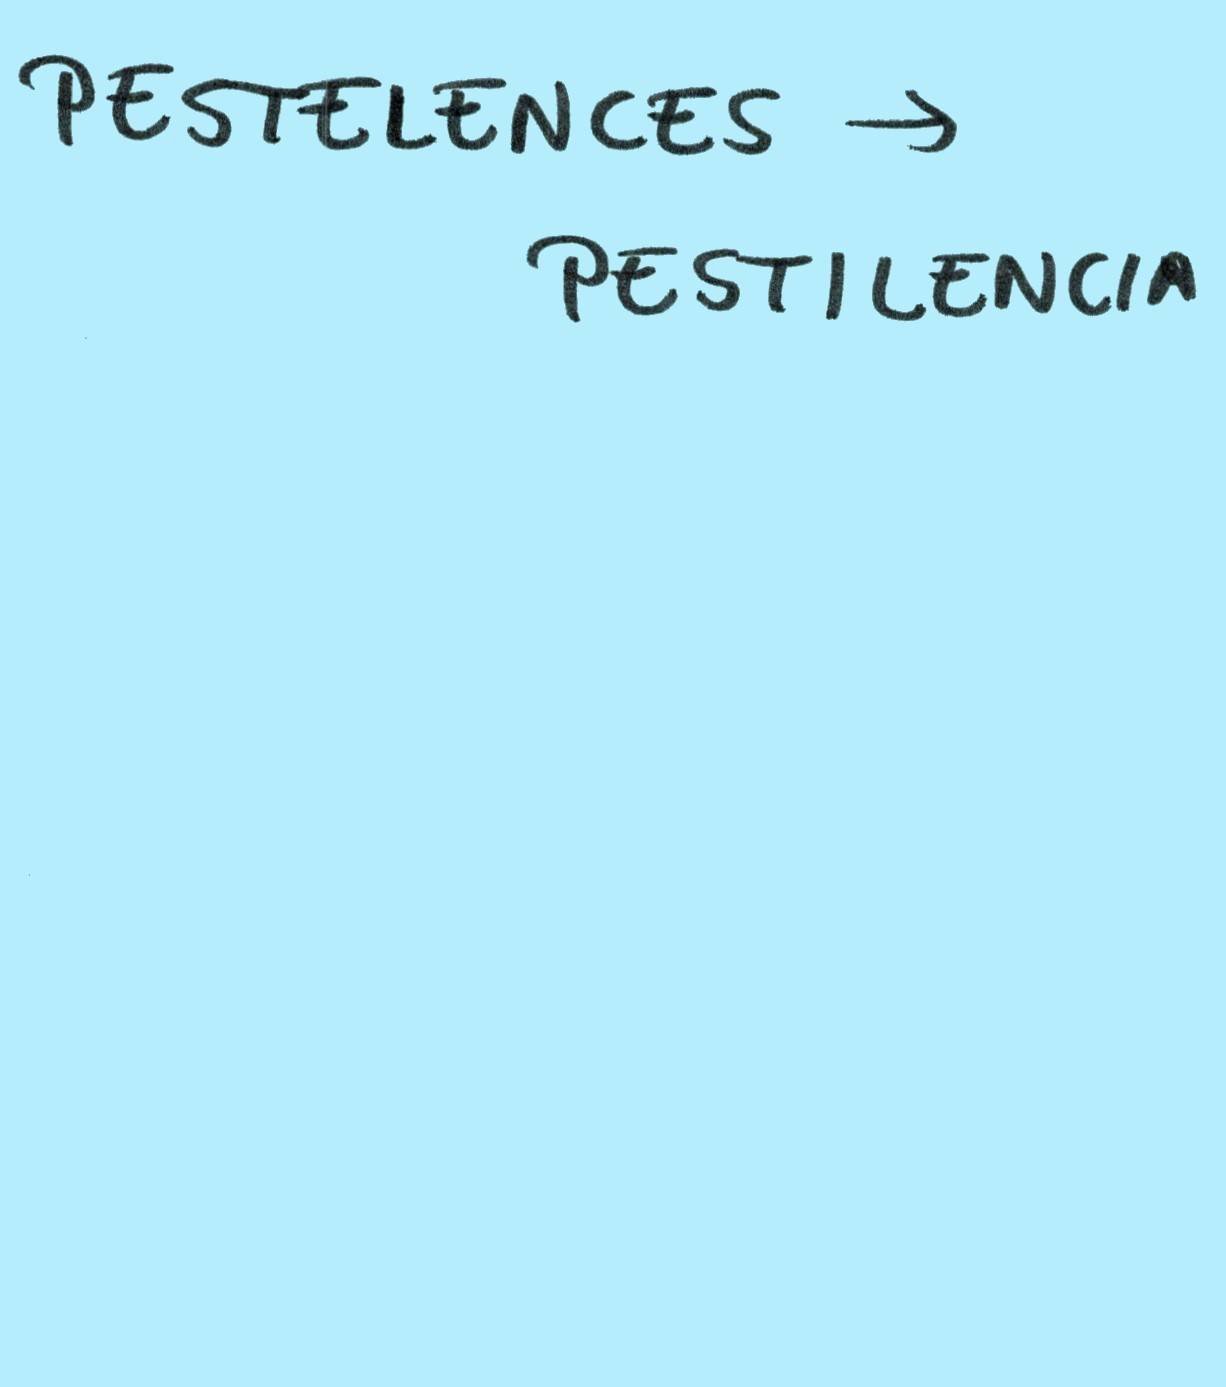 PESTELENCES →
PESTILENCIA